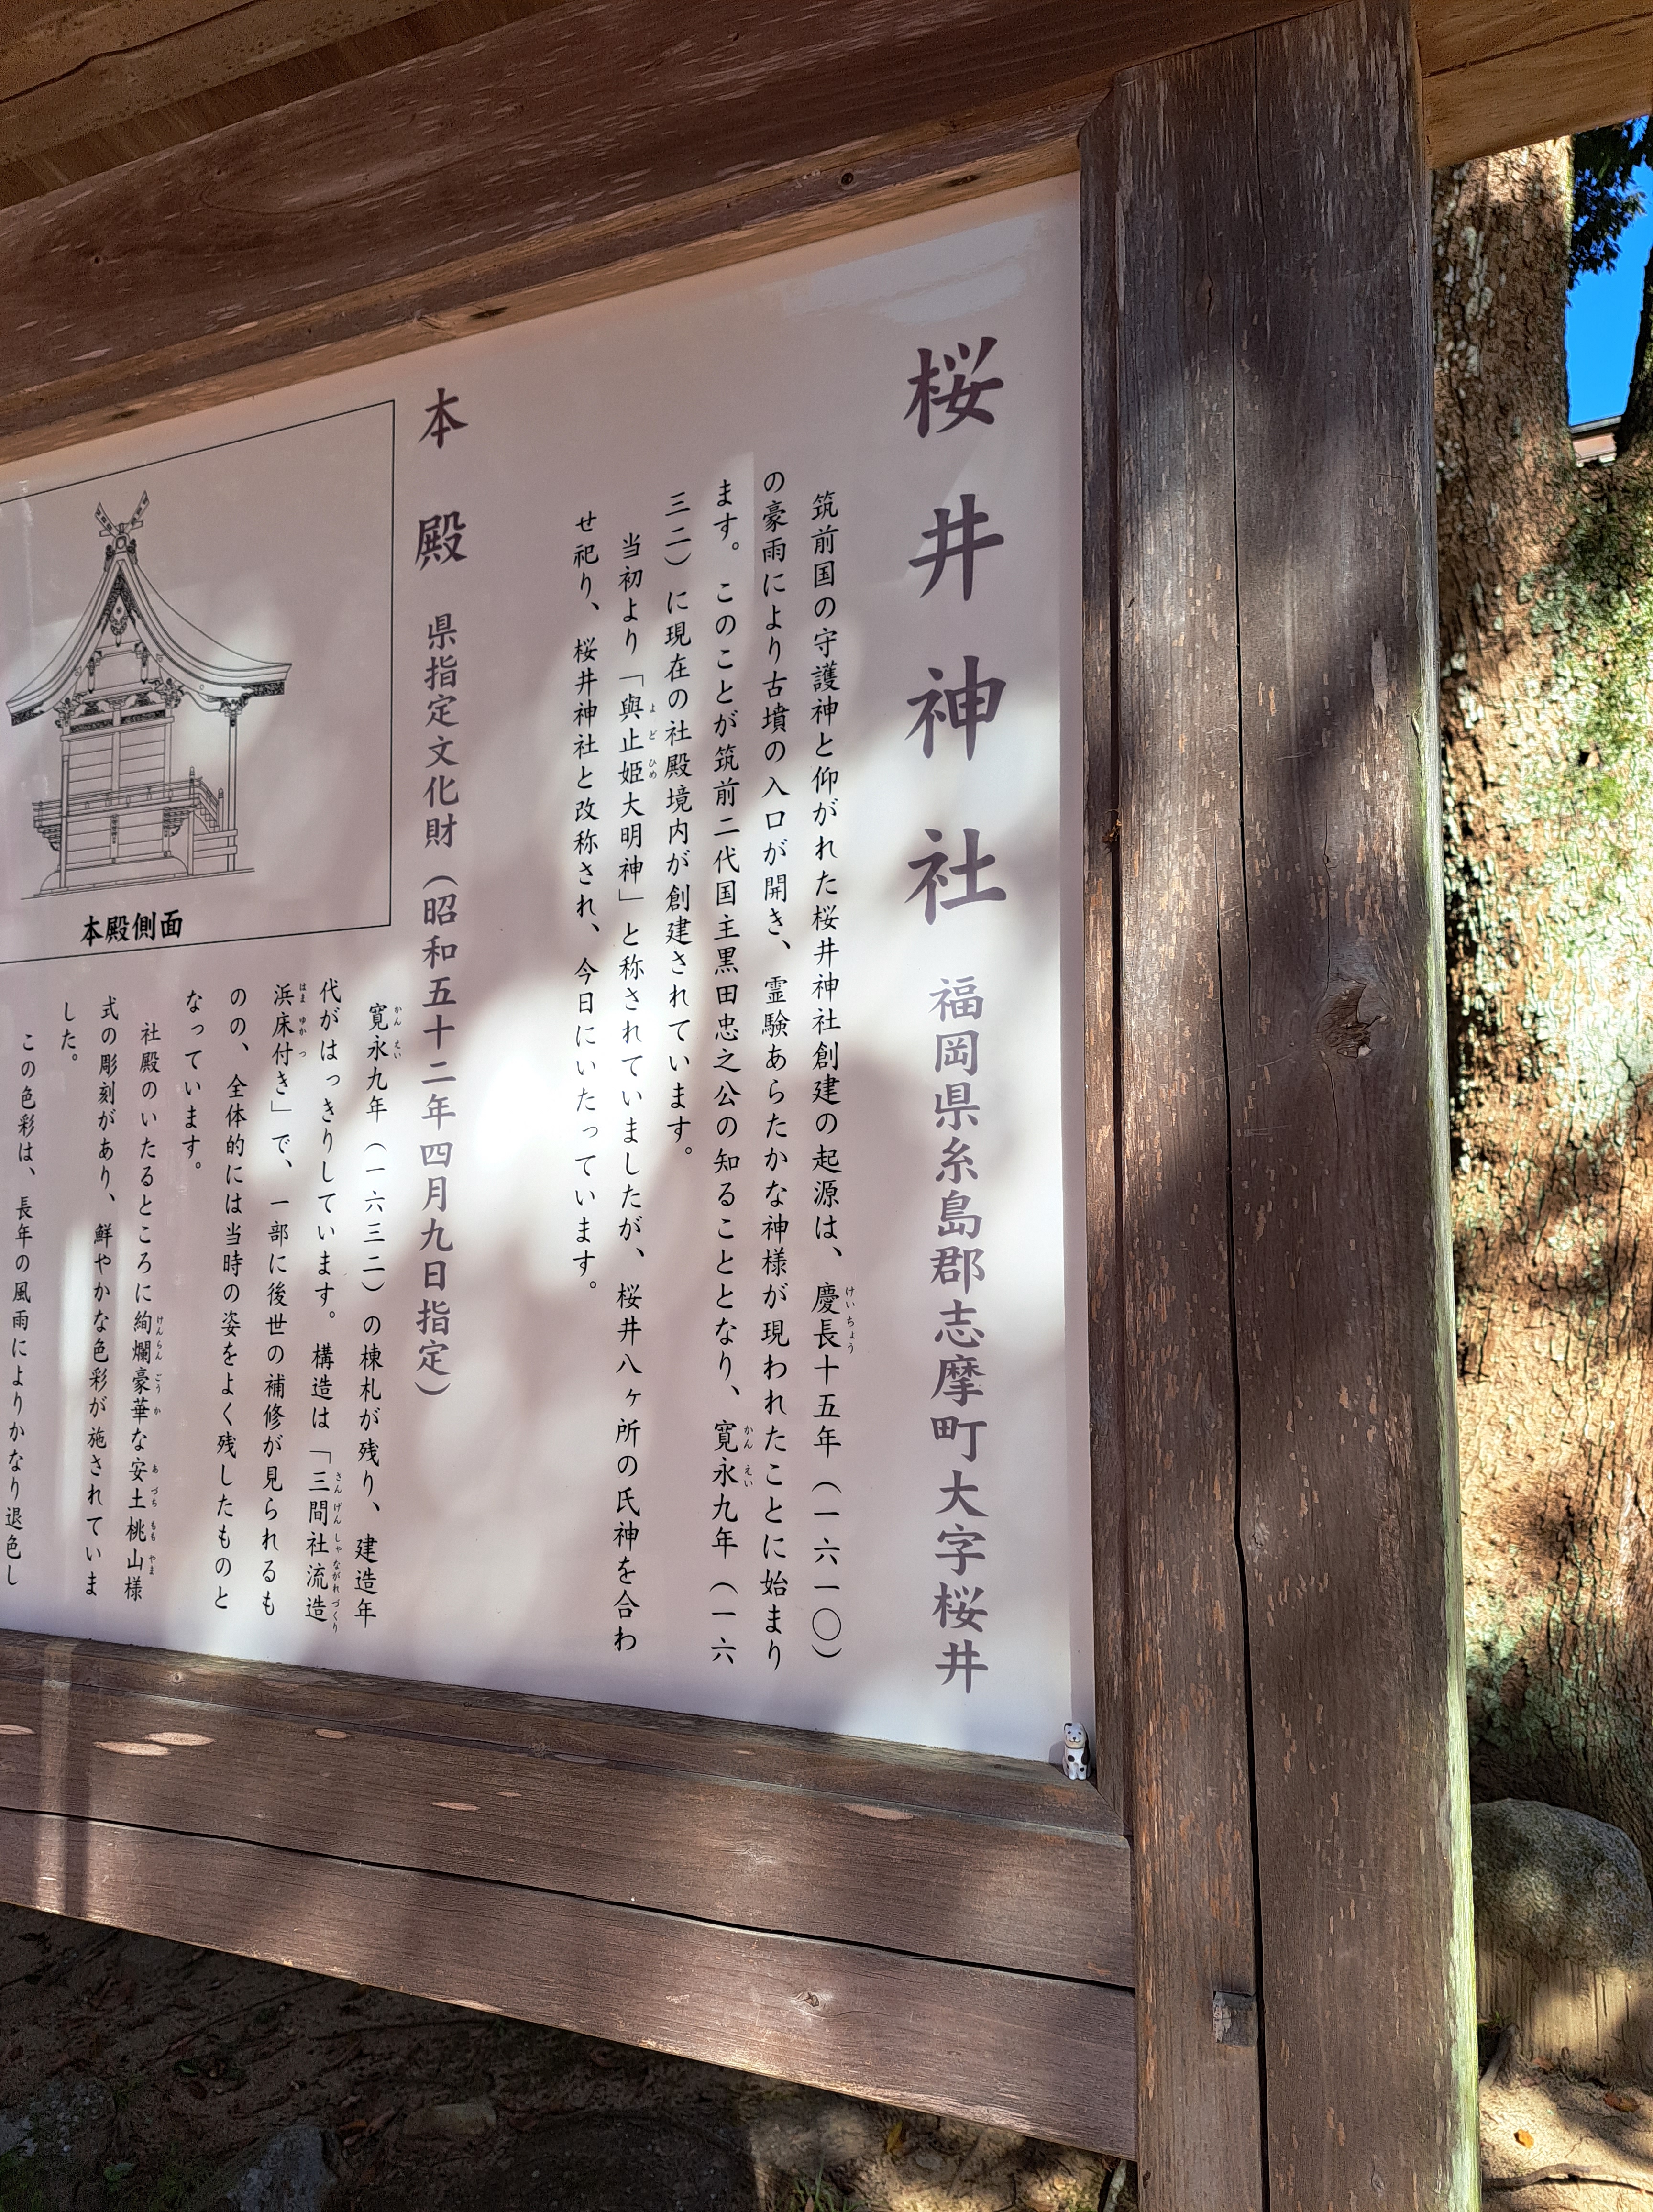 桜井神社 福岡県糸島郡志摩町大字桜井
筑前国の守護神と仰がれた桜井神社創建の起源は、慶長十五年（一六一〇）
けいちょう
の豪雨により古墳の入口が開き、霊験あらたかな神様が現われたことに始まり
ます。このことが筑前二代国主黒田忠之公の知ることとなり、寛永九年（一六
かんえい
三二）に現在の社殿境内が創建されています。
当初より「與止姫大明神」と称されていましたが、桜井八ヶ所の氏神を合わ
よどひめ
せ祀り、桜井神社と改称され、今日にいたっています。
本殿 県指定文化財（昭和五十二年四月九日指定）
寛永九年（一六三二）の棟札が残り、建造年
かんえい
代がはっきりしています。構造は「三間社流造
さんげんしゃながれづくり
浜床付き」で、一部に後世の補修が見られるも
はまゆかつ
のの、全体的には当時の姿をよく残したものと
なっています。
社殿のいたるところに絢爛豪華な安土桃山様
けんらんごうか あづちももやま
式の彫刻があり、鮮やかな色彩が施されていま
した。
この色彩は、長年の風雨によりかなり退色し
本殿側面